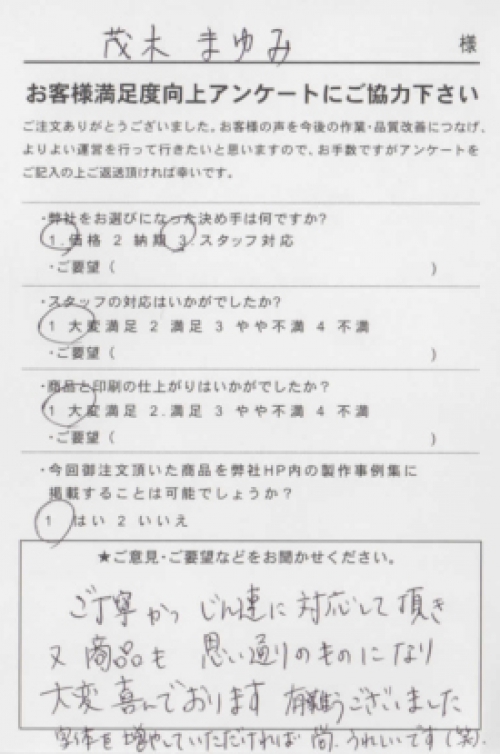 茂木 まゆみ 様
お客様満足度向上アンケートにご協力下さい
ご注文ありがとうございました。お客様の声を今後の作業・品質改善につなげ、
よりよい運営を行って行きたいと思いますので、お手数ですがアンケートを
ご記入の上ご返送頂ければ幸いです。
・弊社をお選びになった決め手は何ですか?
1.価格 2 納期 3.スタッフ対応
・ご要望( )
・スタッフの対応はいかがでしたか?
1 大変満足 2 満足 3 やや不満 4 不満
・ご要望( )
・商品と印刷の仕上がりはいかがでしたか?
1 大変満足 2.満足 3 やや不満 4 不満
・ご要望( )
・今回御注文頂いた商品を弊社HP内の製作事例集に
掲載することは可能でしょうか?
1 はい 2 いいえ
★ご意見・ご要望などをお聞かせください。
ご丁寧かつ じん速に 対応して 頂き
又 商品も 思い通りのものになり
大変 喜んでおります 有難うございました
字体を増やしていただければ 尚、うれしいです(笑)。